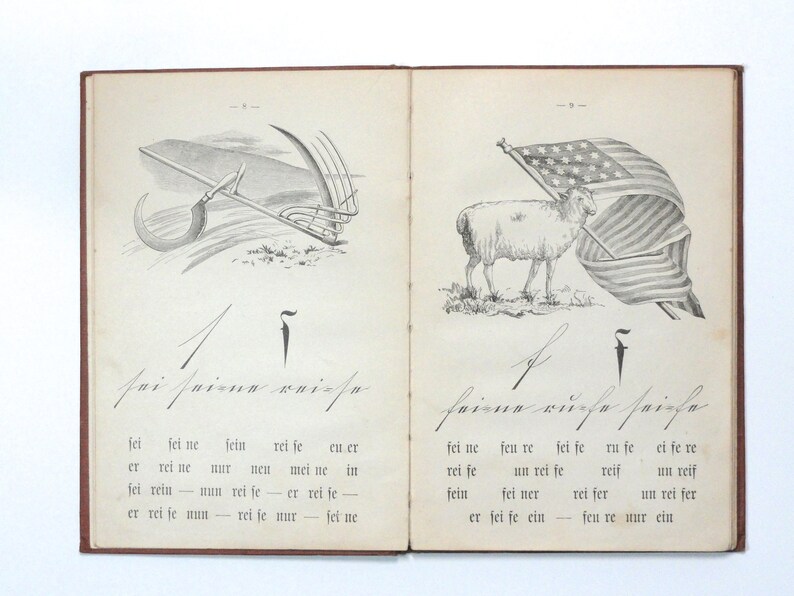 — 8 —
ſ ſ
ſei ſei=ne rei=ſe
ſei ſei ne ſein rei ſe eu er
er rei ne nur neu mei ne in
ſei rein — nun rei ſe — er rei ſe —
er rei ſe nun — rei ſe nur — ſei ne
— 9 —
f f
fei=ne ru=fe ſei=fe
fei ne feu re ſei fe ru fe ei fe re
rei fe un rei fe reif un reif
fein fei ner rei fer un rei fer
er ſei fe ein — feu re nur ein